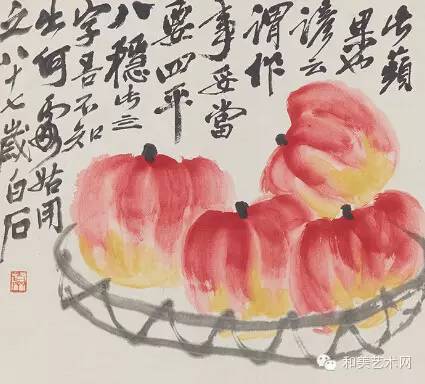 此蘋
果也
諺云
謂作
事妥當
要四平
八穩此
字吾不知
出何處姑用
之八十七歲白石
和美艺术网